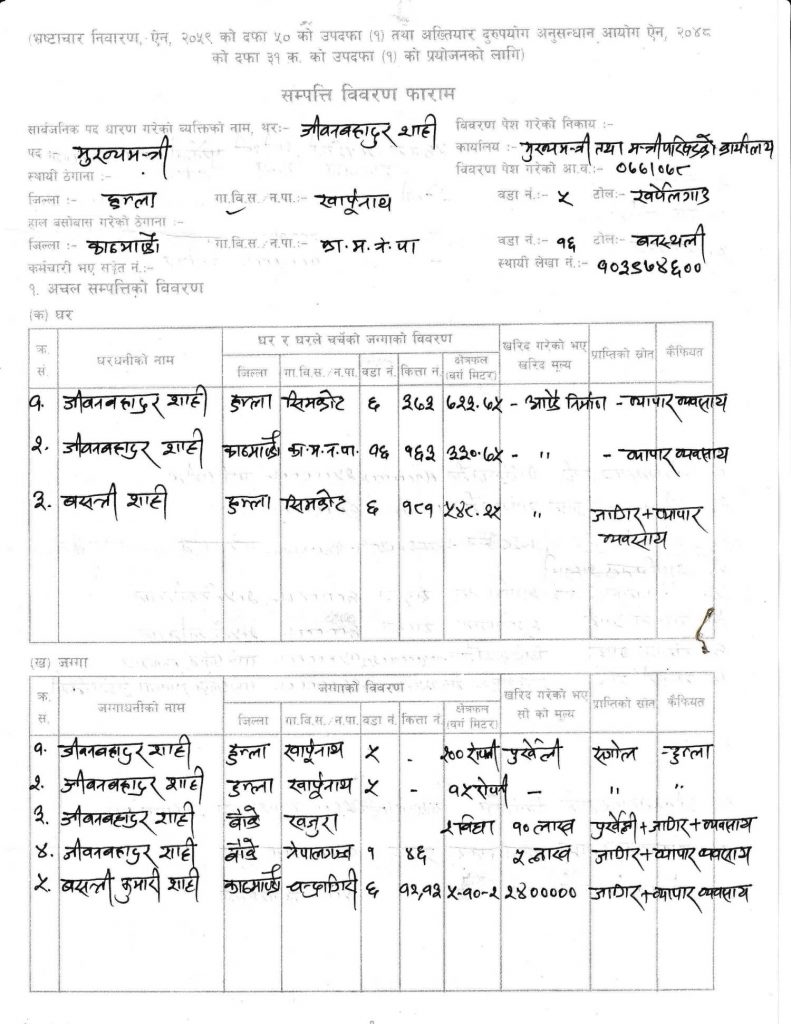 (भ्रष्टाचार निवारण, ऐन, २०५९ को दफा ५० को उपदफा (१) तथा अख्तियार दुरुपयोग अनुसन्धान आयोग ऐन, २०४८
को दफा ३१ क. को उपदफा (१) को प्रयोजनको लागि)
सम्पत्ति विवरण फाराम
सार्वजनिक पद धारण गरेको व्यक्तिको नाम, थर:- जीवनबहादुर शाही विवरण पेश गरेको निकाय :-
पद :- मुख्यमन्त्री कार्यालय :- मुख्यमन्त्री तथा मन्त्रीपरिषद्को कार्यालय
स्थायी ठेगाना :- विवरण पेश गरेको आ.व.:- ०७७/०७८
जिल्ला :- हुम्ला गा.वि.स./न.पा.:- खार्पुनाथ वडा नं.:- ५ टोल:- खर्पेलगाउ
हाल बसोबास गरेको ठेगाना :-
जिल्ला :- काठमाण्डौ गा.वि.स./न.पा.:- का.म.न.पा वडा नं.:- १६ टोल:- बनस्थली
कर्मचारी भए सङ्केत नं.:- स्थायी लेखा नं.:- १०३९७४६००
१. अचल सम्पत्तिको विवरण
(क) घर
क्र. सं. घरधनीको नाम घर र घरले चर्चेको जग्गाको विवरण खरिद गरेको भए खरिद मूल्य प्राप्तिको स्रोत कैफियत
जिल्ला गा.वि.स./न.पा. वडा नं. कित्ता नं. क्षेत्रफल (वर्ग मिटर)
१. जीवनबहादुर शाही हुम्ला सिमकोट ६ ३७३ ७२२.७५ - आफै निर्माण - व्यापार व्यवसाय
२. जीवनबहादुर शाही काठमाण्डौ का.म.न.पा. १६ १६३ ३३०.७५ - " - व्यापार व्यवसाय
३. बसन्ती शाही हुम्ला सिमकोट ६ १८१ ५४८.२५ " जागिर + व्यापार
व्यवसाय
(ख) जग्गा
क्र. सं. जग्गाधनीको नाम जग्गाको विवरण खरिद गरेको भए सो को मूल्य प्राप्तिको स्रोत कैफियत
जिल्ला गा.वि.स./न.पा. वडा नं. कित्ता नं. क्षेत्रफल (वर्ग मिटर)
१. जीवनबहादुर शाही हुम्ला खार्पुनाथ ५ - २०० रोपनी पुर्खेली सगोल - हुम्ला
२. जीवनबहादुर शाही हुम्ला खार्पुनाथ ५ - १५ रोपनी - " "
३. जीवनबहादुर शाही बाँके खजुरा २ विघा १० लाख पुर्खेली + जागिर + व्यवसाय
४. जीवनबहादुर शाही बाँके नेपालगञ्ज १ ४६ ५ लाख जागिर + व्यापार व्यवसाय
५. बसन्ती कुमारी शाही काठमाण्डौ चन्द्रागिरी ६ १२,१३ ५-१०-२ २४००००० जागिर + व्यापार व्यवसाय